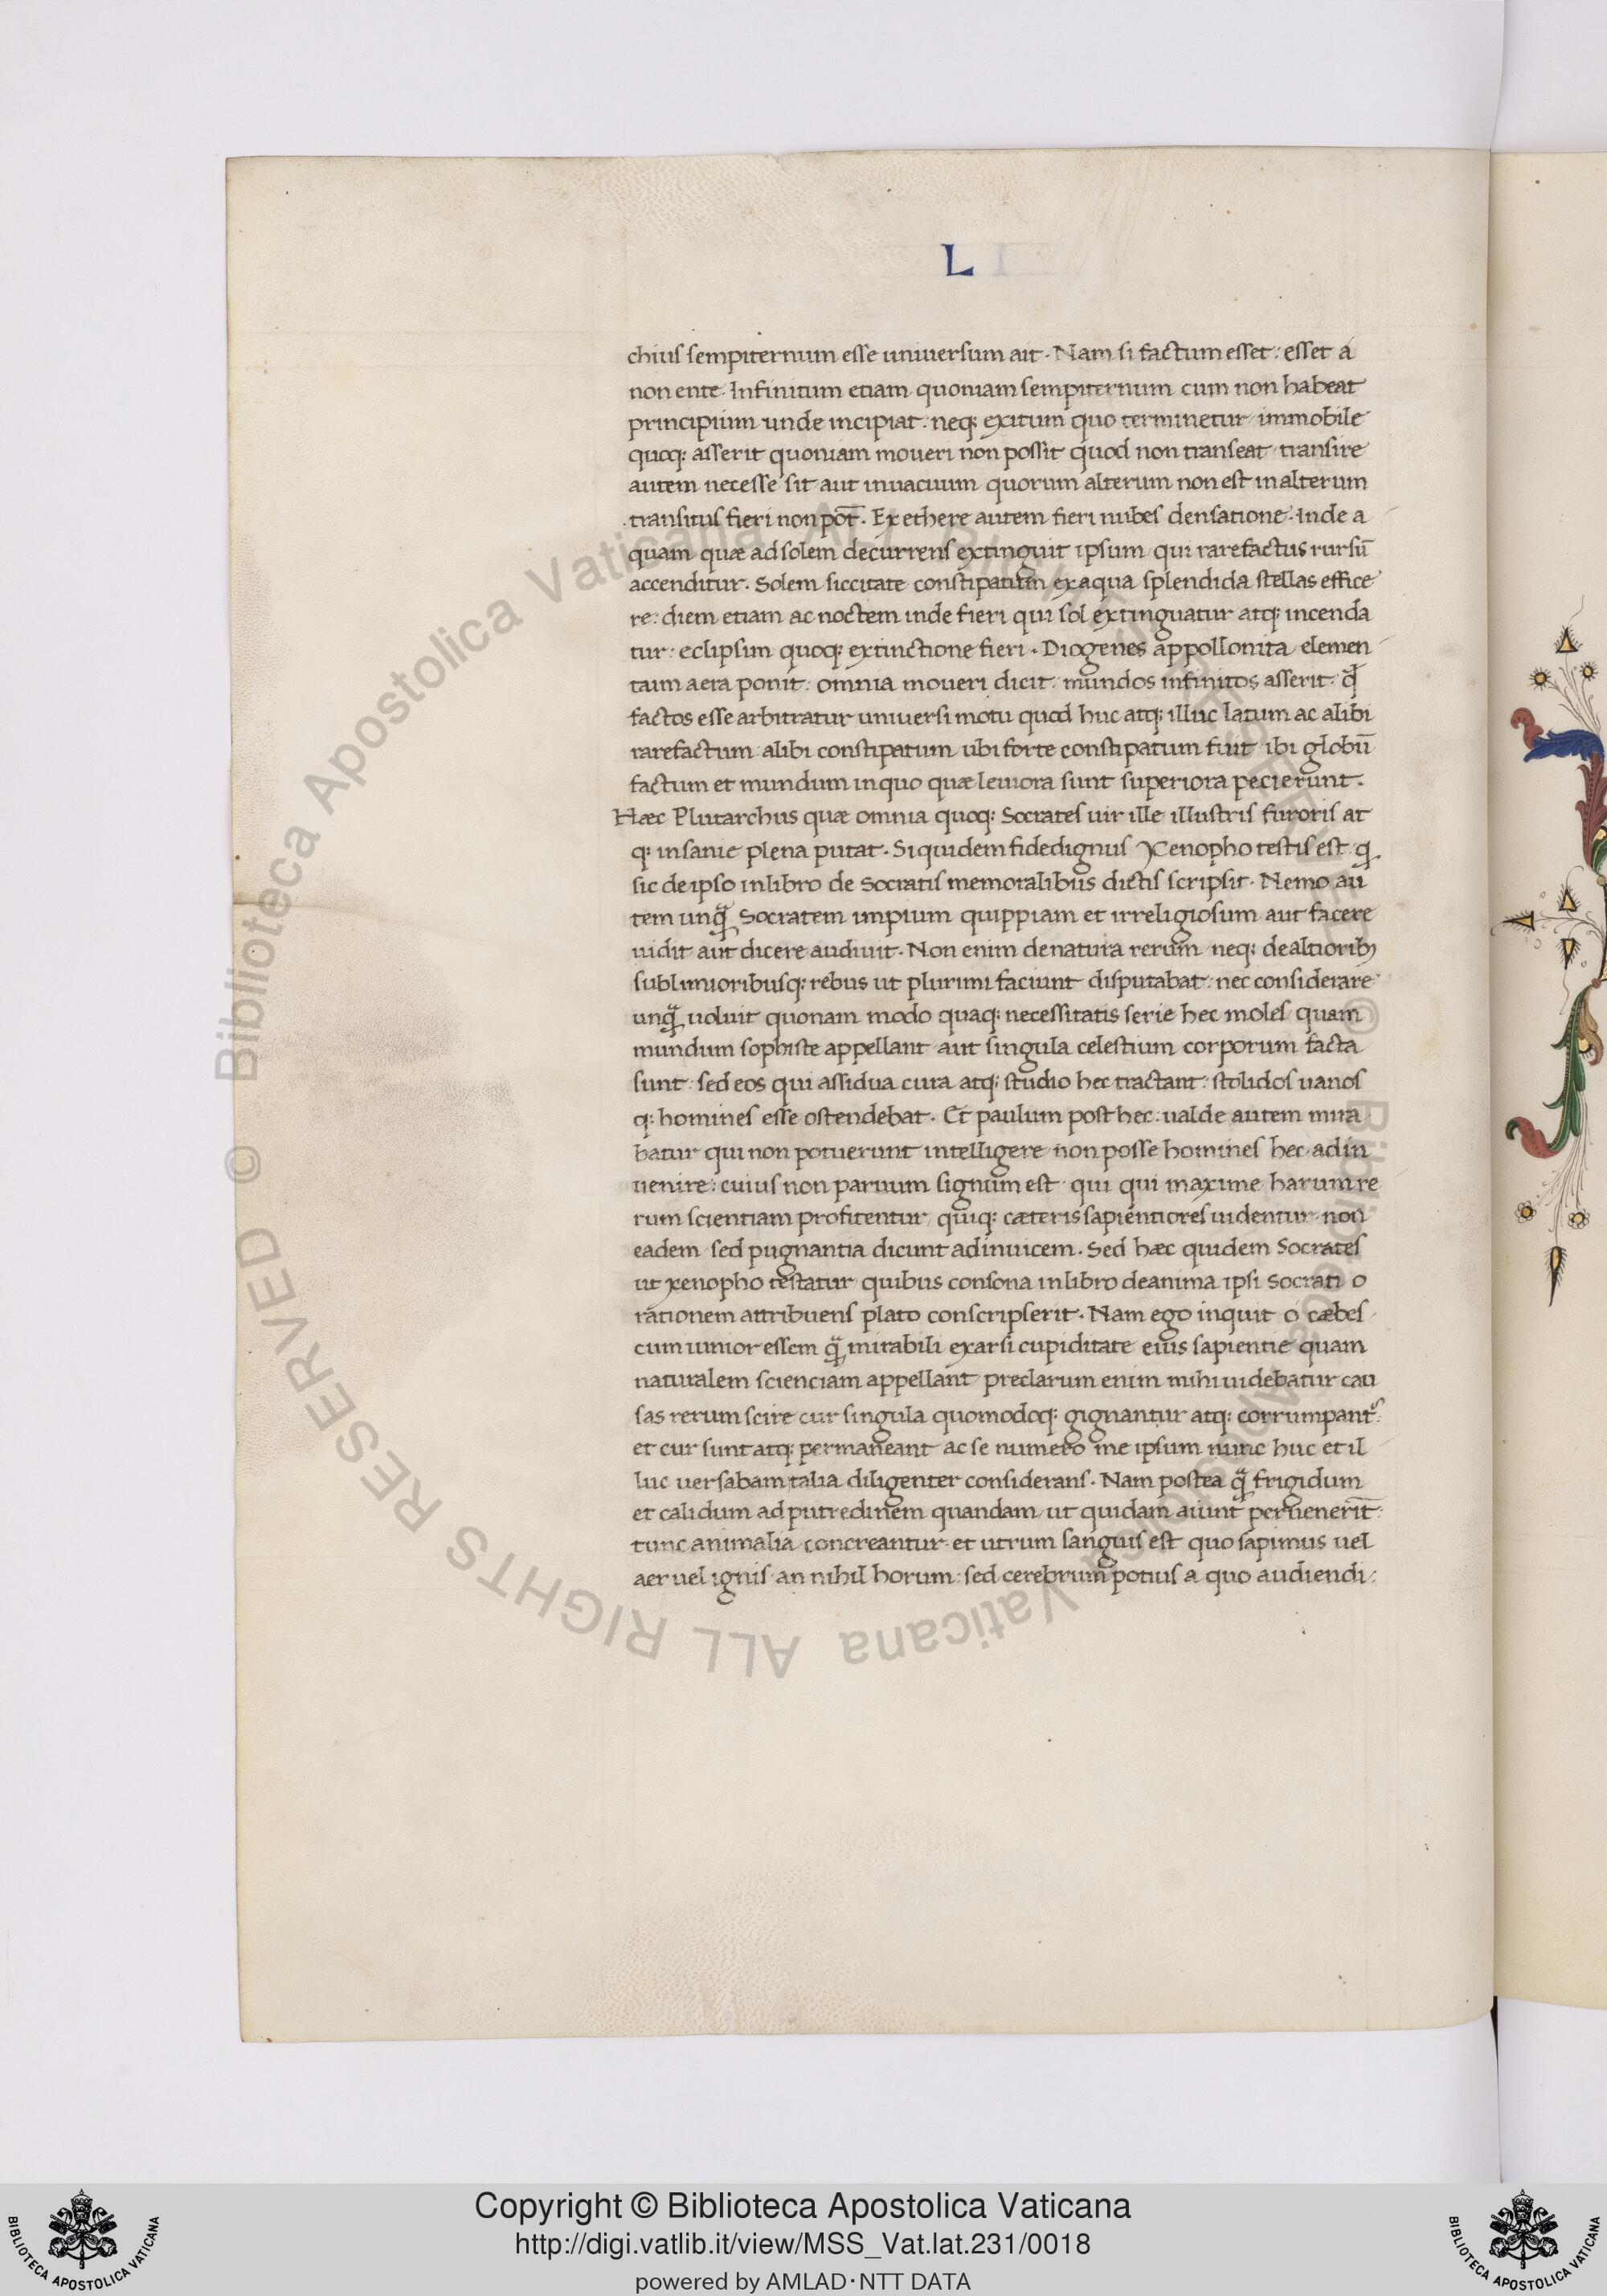 L
chius sempiternum esse uniuersum ait · Nam si factum esset : esset a
non ente · Infinitum etiam quoniam sempiternum cum non habeat
principium unde incipiat : neq; exitum quo terminetur immobile
quoq; asserit quoniam moueri non possit quod non transeat transire
autem necesse sit aut in uacuum quorum alterum non est in alterum
transitus fieri non pot̄ · Ex ethere autem fieri nubes densatione · Inde a
quam quæ ad solem decurrens extinguit ipsum / qui rarefactus rursū
accenditur · Solem siccitate constipatum ex aqua splendida stellas effice
re : diem etiam ac noctem inde fieri qui sol extinguatur atq; incenda
tur : eclipsim quoq; extinctione fieri · Diogenes appollonita elemen
tum aera ponit : omnia moueri dicit : mundos infinitos asserit : ꝙ
factos esse arbitratur uniuersi motu quod huc atq; illuc latum ac alibi
rarefactum alibi constipatum ubi forte constipatum fuit ibi globū
factum et mundum in quo quæ leuiora sunt superiora pecierunt ·
Hæc Plutarchus quæ omnia quoq; Socrates uir ille illustris furoris at
q; insanie plena putat · Si quidem fide dignus Xenopho testis est q
sic de ipso in libro de Socratis memoralibus dictis scripsit · Nemo au
tem unq̃ Socratem impium quippiam et irreligiosum aut facere
uidit aut dicere audiuit · Non enim de natura rerum neq; de altiorib;
sublimioribusq; rebus ut plurimi faciunt disputabat : nec considerare
unq̃ uoluit quonam modo quaq; necessitatis serie hec moles quam
mundum sophiste appellant aut singula celestium corporum facta
sunt : sed eos qui assidua cura atq; studio hec tractant : stolidos uanos
q; homines esse ostendebat · Et paulum post hec : ualde autem mira
batur qui non potuerunt intelligere non posse homines hec adin
uenire : cuius non paruum signum est qui qui maxime harum re
rum scientiam profitentur / quiq; cæteris sapientiores uidentur non
eadem sed pugnantia dicunt adinuicem · Sed hæc quidem Socrates
ut xenopho testatur quibus consona in libro de anima ipsi Socrati o
rationem attribuens plato conscripserit · Nam ego inquit o cæbes
cum iunior essem q̃ mirabili exarsi cupiditate eius sapientie quam
naturalem scienciam appellant preclarum enim mihi uidebatur cau
sas rerum scire cur singula quomodoq; gignantur atq; corrumpant᷑ :
et cur sunt atq; permaneant ac se numero me ipsum nunc huc et il
luc uersabam talia diligenter considerans · Nam postea q̃ frigidum
et calidum ad putredinem quandam / ut quidam aiunt peruenerit̄
tunc animalia concreantur et utrum sanguis est quo sapimus uel
aer uel ignis an nihil horum : sed cerebrum potius a quo audiendi :
© Biblioteca Apostolica Vaticana ALL RIGHTS RESERVED
© Biblioteca Apostolica Vaticana ALL RIGHTS RESERVED
Copyright © Biblioteca Apostolica Vaticana
http://digi.vatlib.it/view/MSS_Vat.lat.231/0018
powered by AMLAD·NTT DATA
BIBLIOTECA APOSTOLICA VATICANA
BIBLIOTECA APOSTOLICA VATICANA